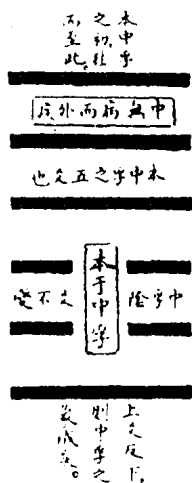 本中孚
之初,往
而至此
中無病而外疾
本中孚之五爻也
中孚陰
本于中孚
爻不變
上爻反下,
則中孚之